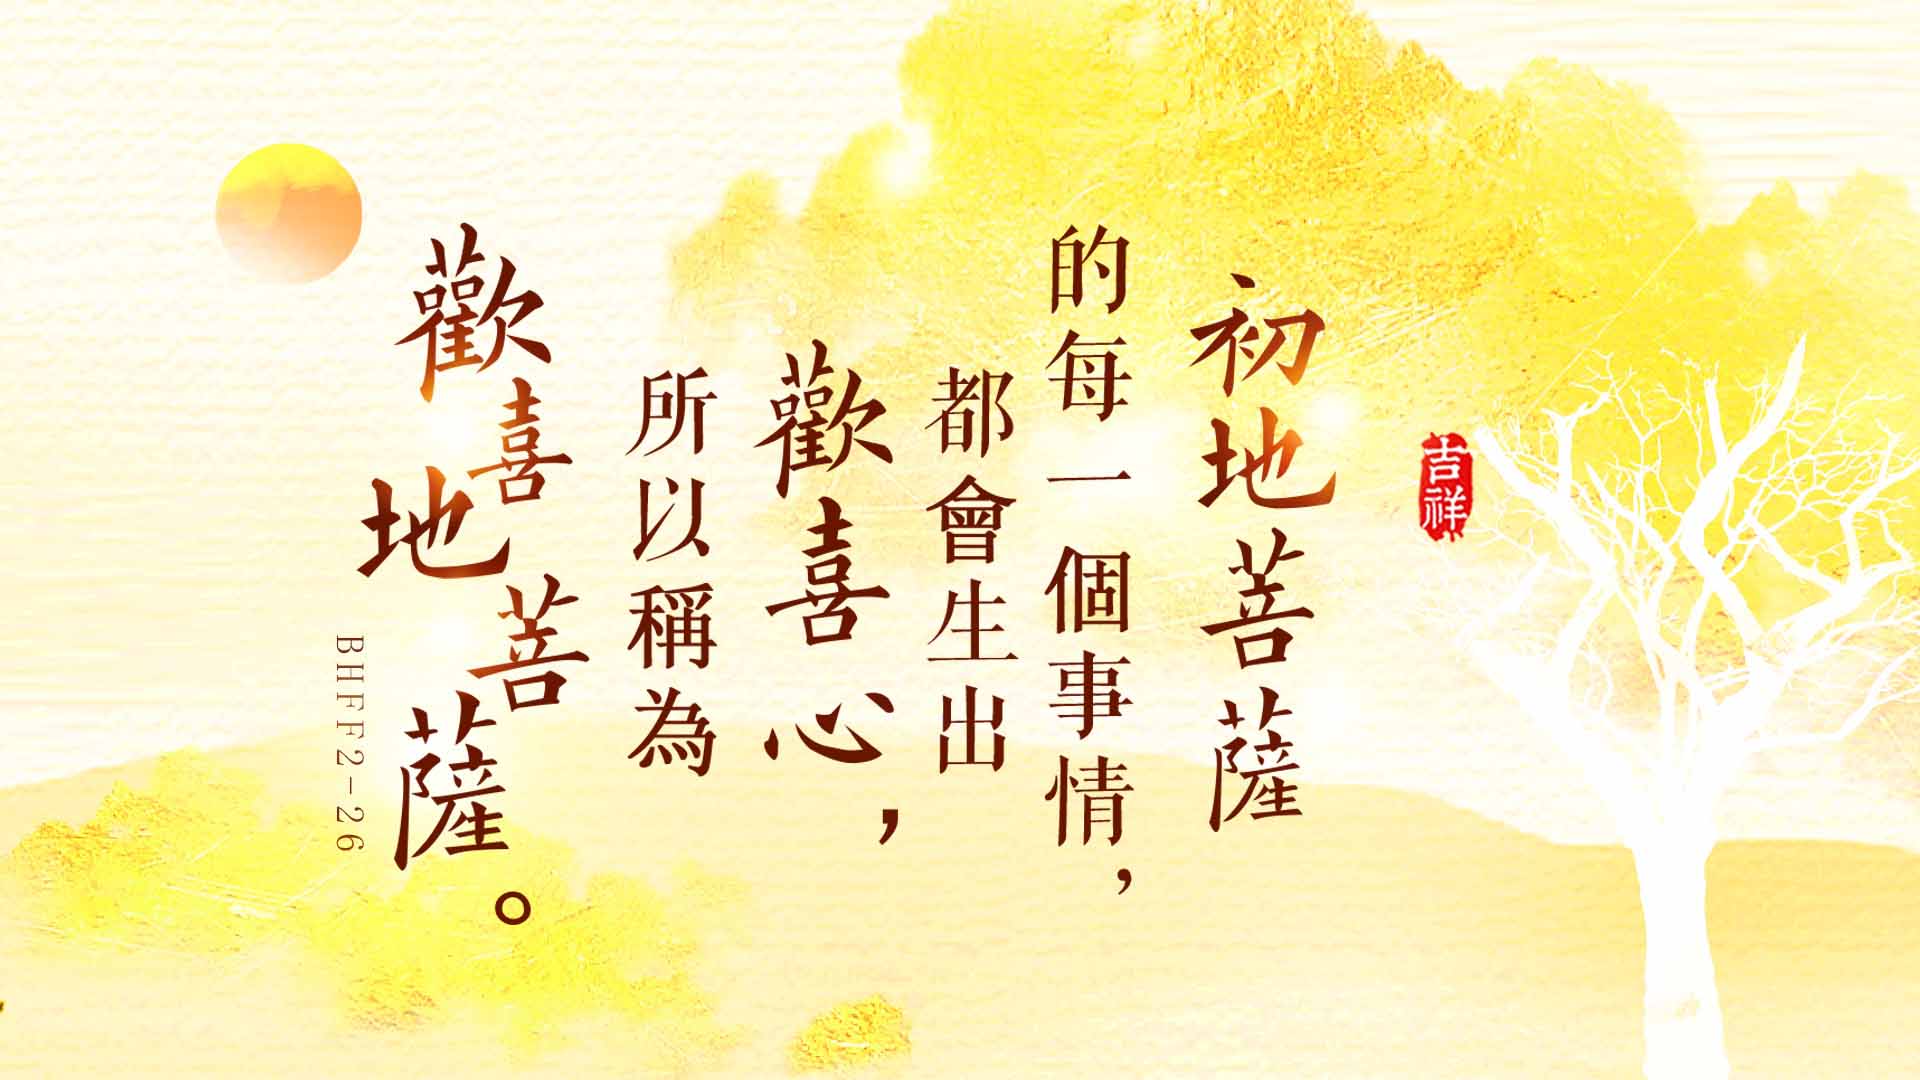 吉祥
初地菩薩
的每一個事情，
都會生出
歡喜心，
所以稱為
歡喜地菩薩。
BHFF2-26